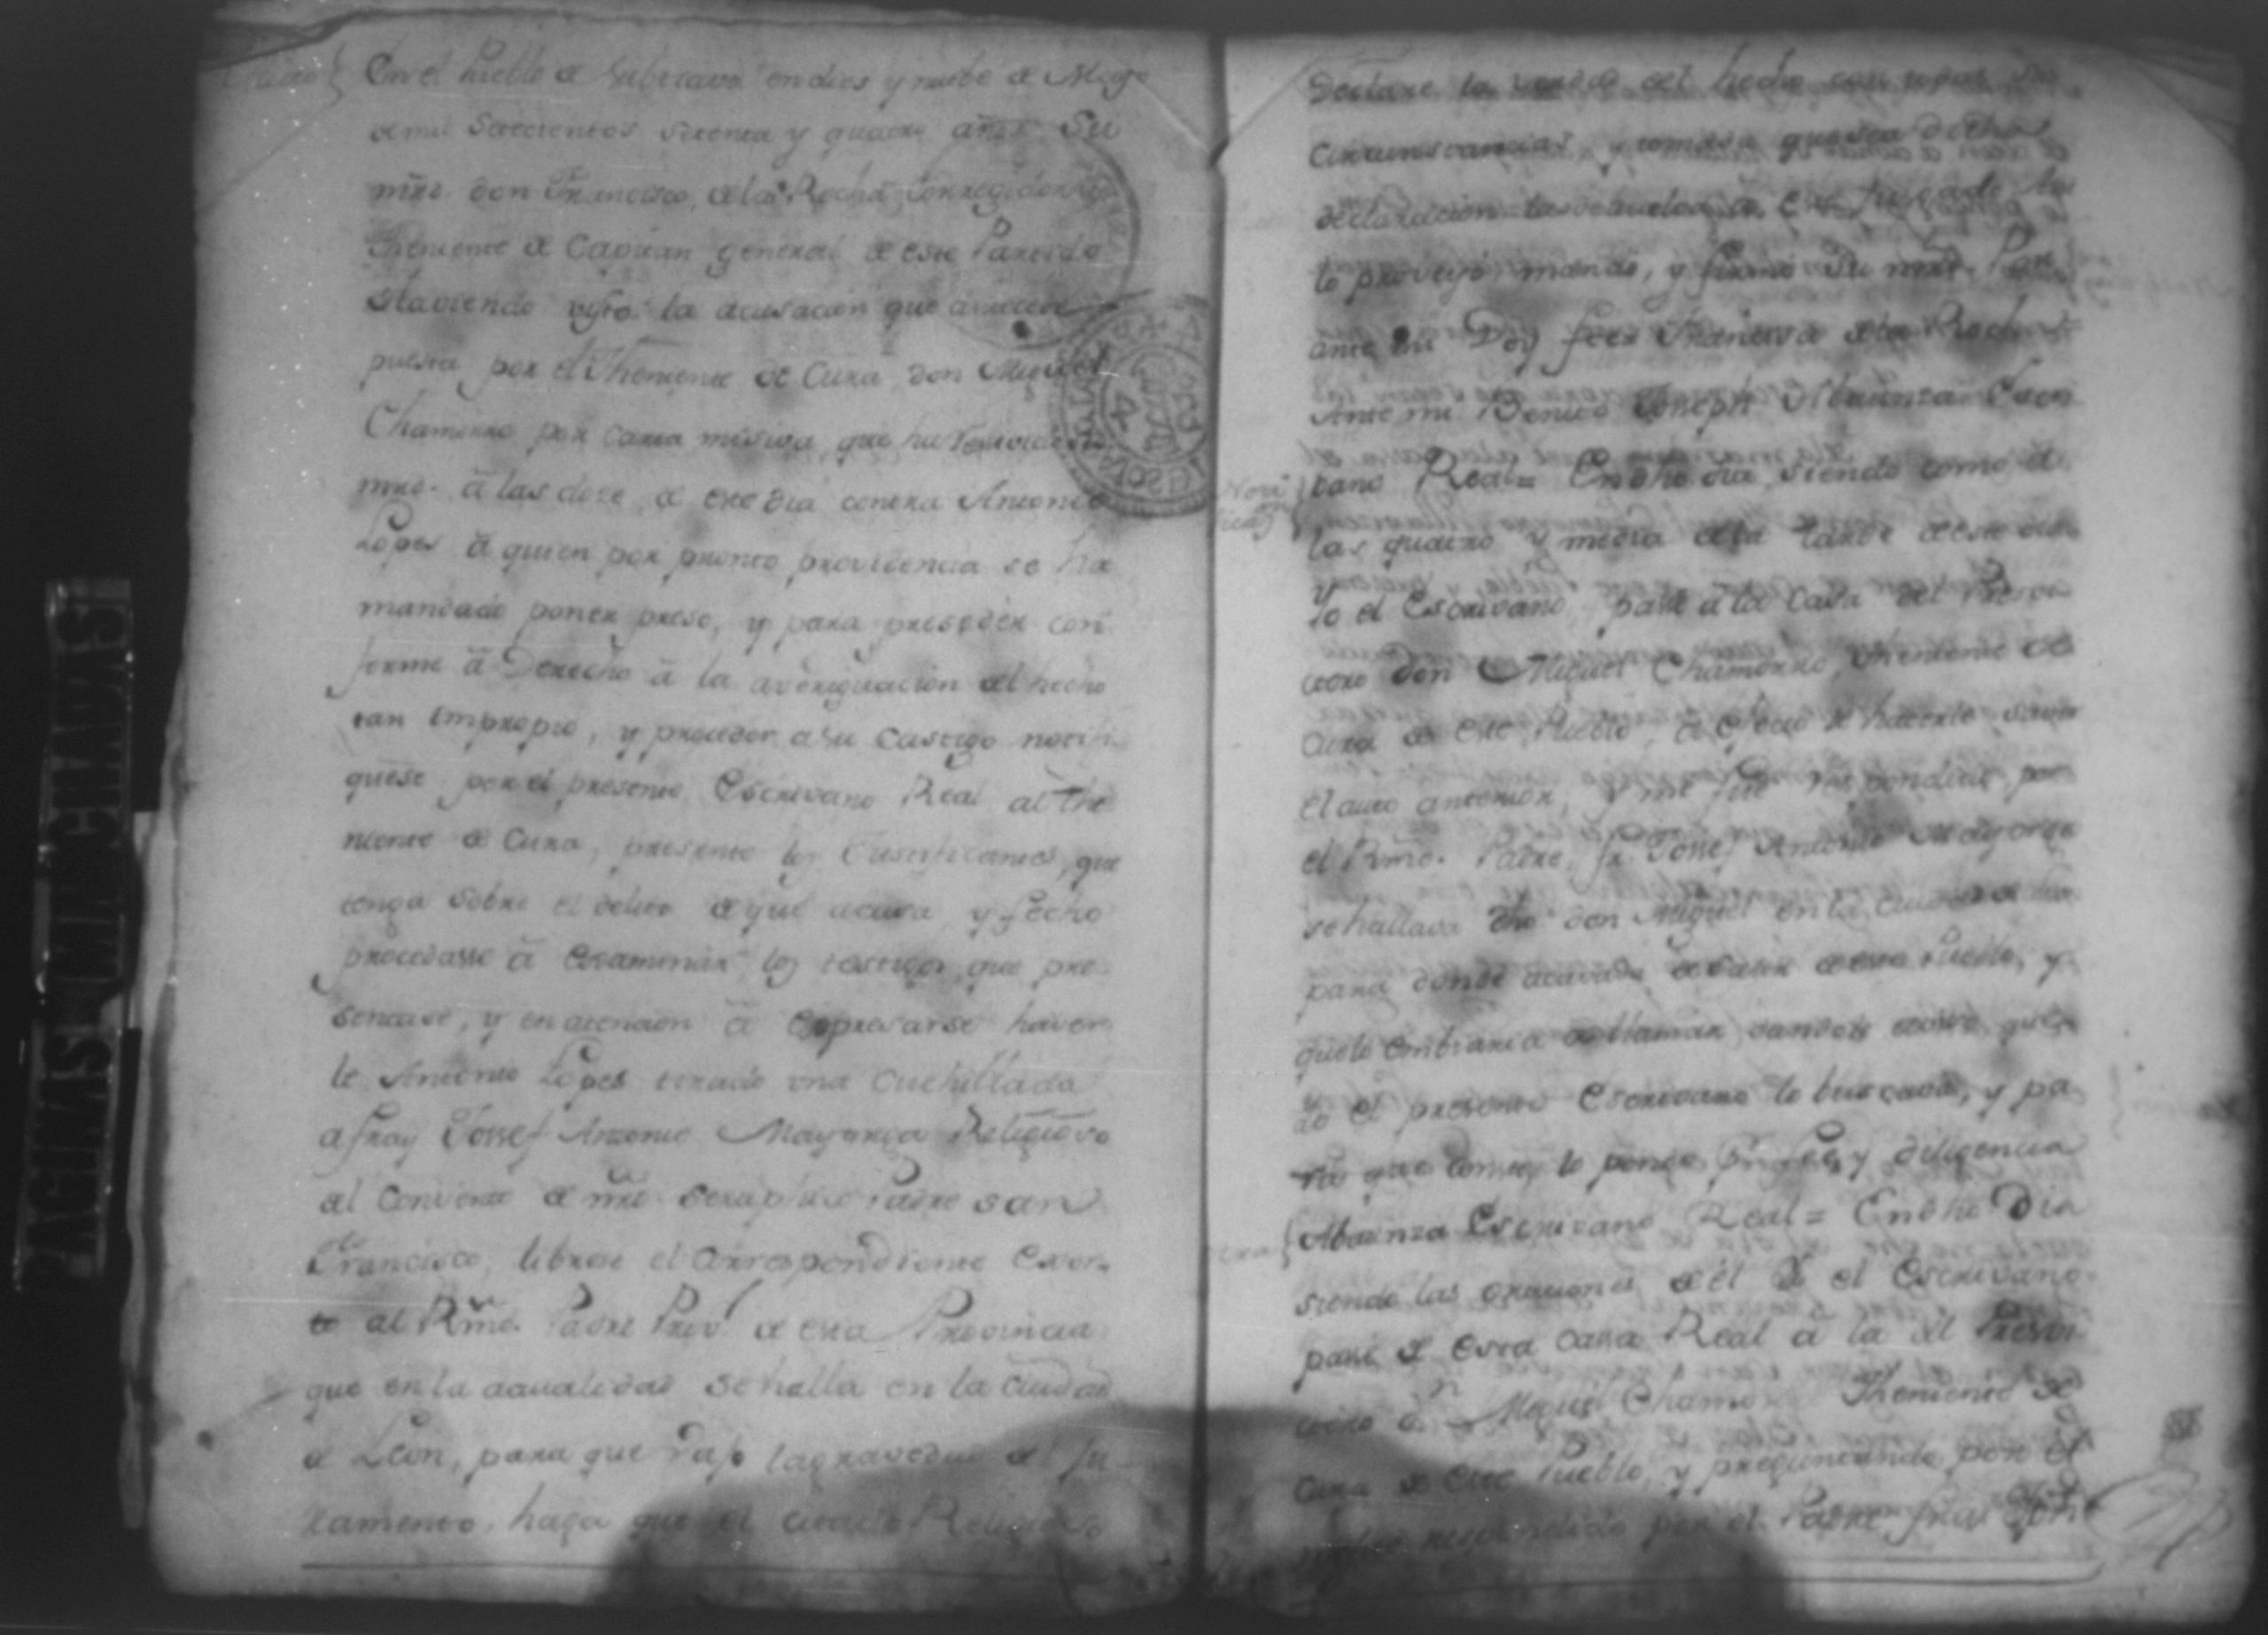 En el Pueblo de Subtiava en dies y nuebe de Mayo
de mil Settecientos setenta y quatro años Su
mrd. don Francisco, de la Rocha Corregidor y
Theniente de Capitan general de este Partido
Haviendo visto la acusacion que antecede
puesta por el Theniente de Cura don Miguel
Chamorro por carta misiva, que ha resevido su
mrd. â las doze de este dia contra Antonio
Lopes â quien por pronta providencia se ha
mandado poner preso, y para preseder con
forme â Derecho â la averiguacion del hecho
tan impropio, y proceder a su castigo notifi
quese por el presente Escrivano Real al The
niente de Cura, presente los Justificantes, que
tenga sobre el delito de que acusa, y fecho
procedasse â examinar los testigos, que pre
sentase, y en atencion â expresarse haver
le Antonio Lopes tirado una cuchillada
a fray Jossef Antonio Mayorga Religioso
del Convento de nro. Seraphico Padre san
Francisco, librese el Correspondiente exor
to al Rmo. Padre Provl. de esta Provincia
que en la actualidad se halla en la ciudad
de Leon, para que vajo la gravedad del Ju
ramento, haga que el citado Religioso
Declare la verdad del hecho con todas sus
circunstancias, y tomada que sea dicha
declaracion la debuelva a este Jusgado Asi
lo proveyó mandó, y firmó Su mrd. Por
ante mi Doy fee= Francisco de la Rocha=
Ante mi Benito Joseph Abaunza Escri
Noti
ficaz.on
bano Real= En dho dia siendo como a
las quatro y media de la tarde de este dia
Yo el Escrivano, pasé a la Casa del Presvi
tero don Miguel Chamorro, Theniente de
Cura de este Pueblo, a efecto de hacerle saver
el auto anterior, y me fue respondido por
el Rmo. Padre, fr. Jossef Antonio Mayorga
se hallava dho don Miguel en la ciudad de
para donde acavava de salir de este Pueblo, y
que le embiaria a llamar dandole aviso que
Yo el presente Escrivano le buscava, y pa
ra que conste, lo pongo por fee, y diligencia
Otra
Abaunza Escrivano Real= En dho Dia
siendo las oraciones de él Yo el Escrivano
pasé de esta Casa Real â la del Presvi
tero dn. Miguel Chamo Theniente de
Cura de este Pueblo, y preguntando por él
respondido por el Padre fray